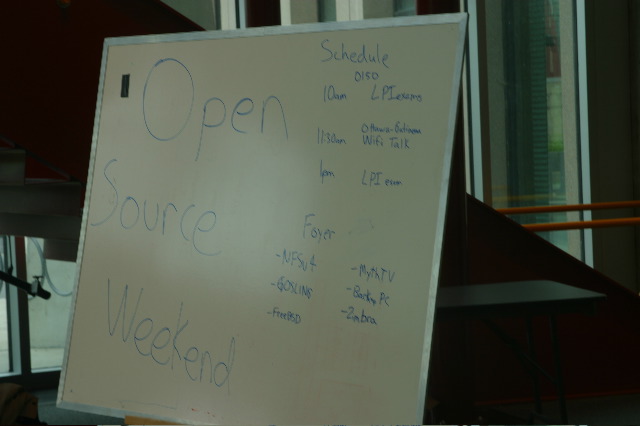 Open
Source
Weekend
Schedule
D150
10am LPI exams
11:30am Ottawa-Gatineau
WiFi Talk
1pm LPI exam
Foyer
-NFSv4
-GOSLING
-FreeBSD
-MythTV
-PC
-Zimbra